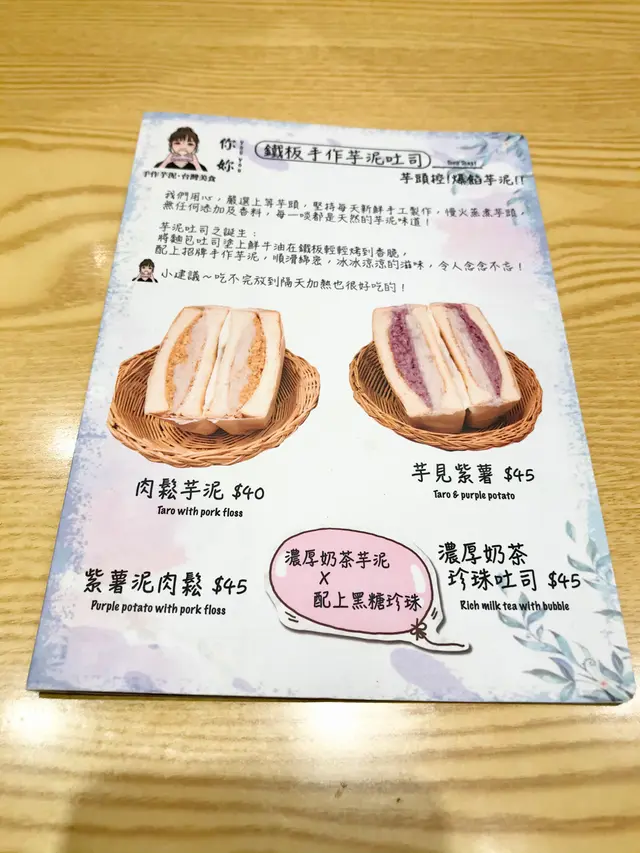 你妳
YEE YEE
手作芋泥·台灣美食
鐵板手作芋泥吐司
芋頭控!爆餡芋泥!!
我們用心，嚴選上等芋頭，堅持每天新鮮手工製作，慢火蒸煮芋頭，
無任何添加及香料，每一啖都是天然的芋泥味道！
芋泥吐司之誕生：
將麵包吐司塗上鮮牛油在鐵板輕輕烤到香脆，
配上招牌手作芋泥，順滑綿密，冰冰涼涼的滋味，令人念念不忘！
小建議～吃不完放到隔天加熱也很好吃的！
肉鬆芋泥 $40
Taro with pork floss
芋見紫薯 $45
Taro & purple potato
紫薯泥肉鬆 $45
Purple potato with pork floss
濃厚奶茶芋泥
X
配上黑糖珍珠
濃厚奶茶
珍珠吐司 $45
Rich milk tea with bubble